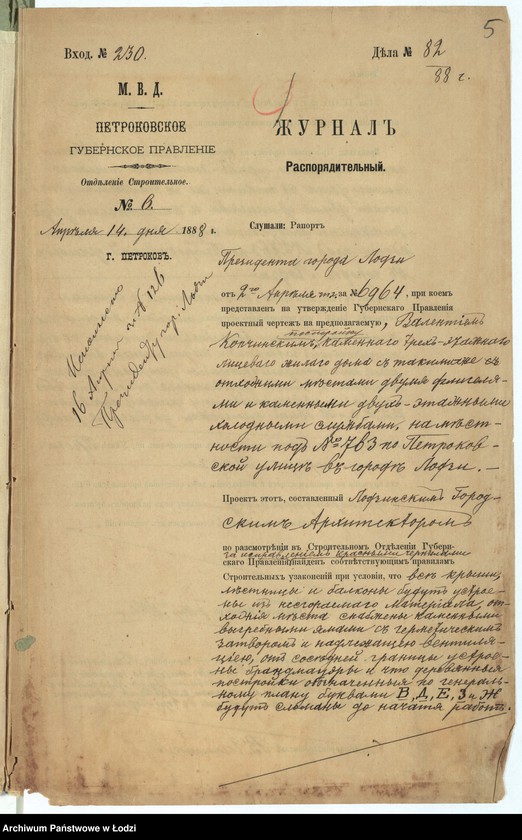 5
Вход. № 230.
Дѣла № 82
88 г.
М. В. Д.
ПЕТРОКОВСКОЕ
ГУБЕРНСКОЕ ПРАВЛЕНІЕ
Отдѣленіе Строительное.
№ 6.
Апрѣля 14 дня 1888 г.
Г. ПЕТРОКОВЪ.
16 Апрѣля
Президенту гор. Лодзи
ЖУРНАЛЪ
Распорядительный.
Слушали: Рапортъ
Президента города Лодзи
отъ 2го Апрѣля т. г. за № 6964, при коемъ
представленъ на утвержденіе Губернскаго Правленія
проектный чертежъ на предполагаемую, Валентіемъ
постройку
Копчинскимъ, каменнаго трехъ-этажнаго
лицеваго жилаго дома съ такими же съ
отхожими мѣстами двумя флигеля-
ми и каменными двухъ-этажными
холодными службами, на мѣст-
ности подъ № 783 по Петроков-
ской улицѣ въ городѣ Лодзи. —
Проектъ этотъ, составленный Лодзинскимъ Город-
скимъ Архитекторомъ
по разсмотрѣніи въ Строительномъ Отдѣленіи Губерн-
съ исправленіемъ красными чернилами
скаго Правленія найденъ соотвѣтствующимъ правиламъ
Строительныхъ узаконеній при условіи, что всѣ крыши,
лѣстницы и балконы будутъ устрое-
ны изъ несгораемаго матеріала, от-
хожія мѣста снабжены каменными
выгребными ямами съ герметическимъ
затворомъ и надлежащею вентиля-
ціею, отъ сосѣдней границы устрое-
ны брандмауэры и что деревянныя
постройки обозначенныя по генераль-
ному плану буквами В, Д, Е, З и Ж
будутъ сломаны до начатія работъ.
Archiwum Państwowe w Łodzi